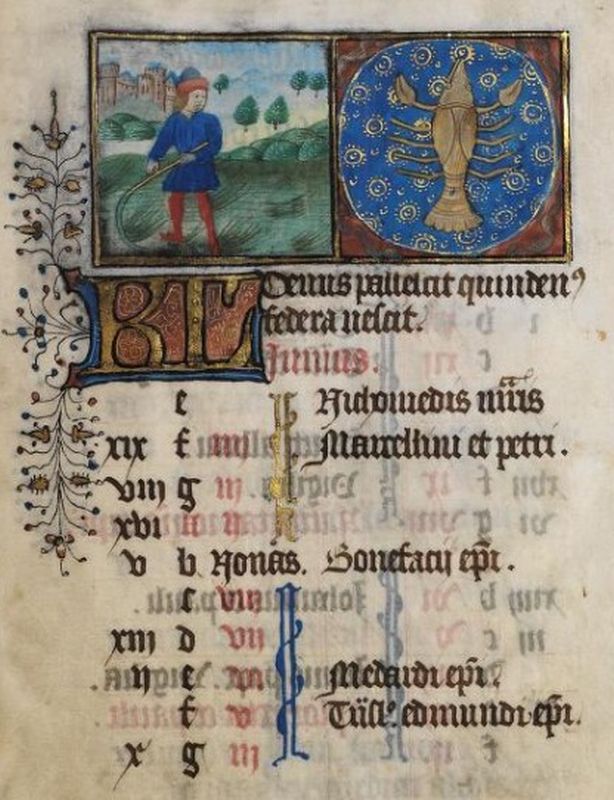 KL Denus pallescit quindenꝰ
federa nescit.
Junius.
e Nichomedis mr̄is
xix f iiii Marcellini et petri.
viii g iii
xvi A ii
v b Nonas. Bonefacij ep̄i.
c viii
xiii d vii
ii e vi Medardi ep̄i.
f v edmundi ep̄i.
x g iiii